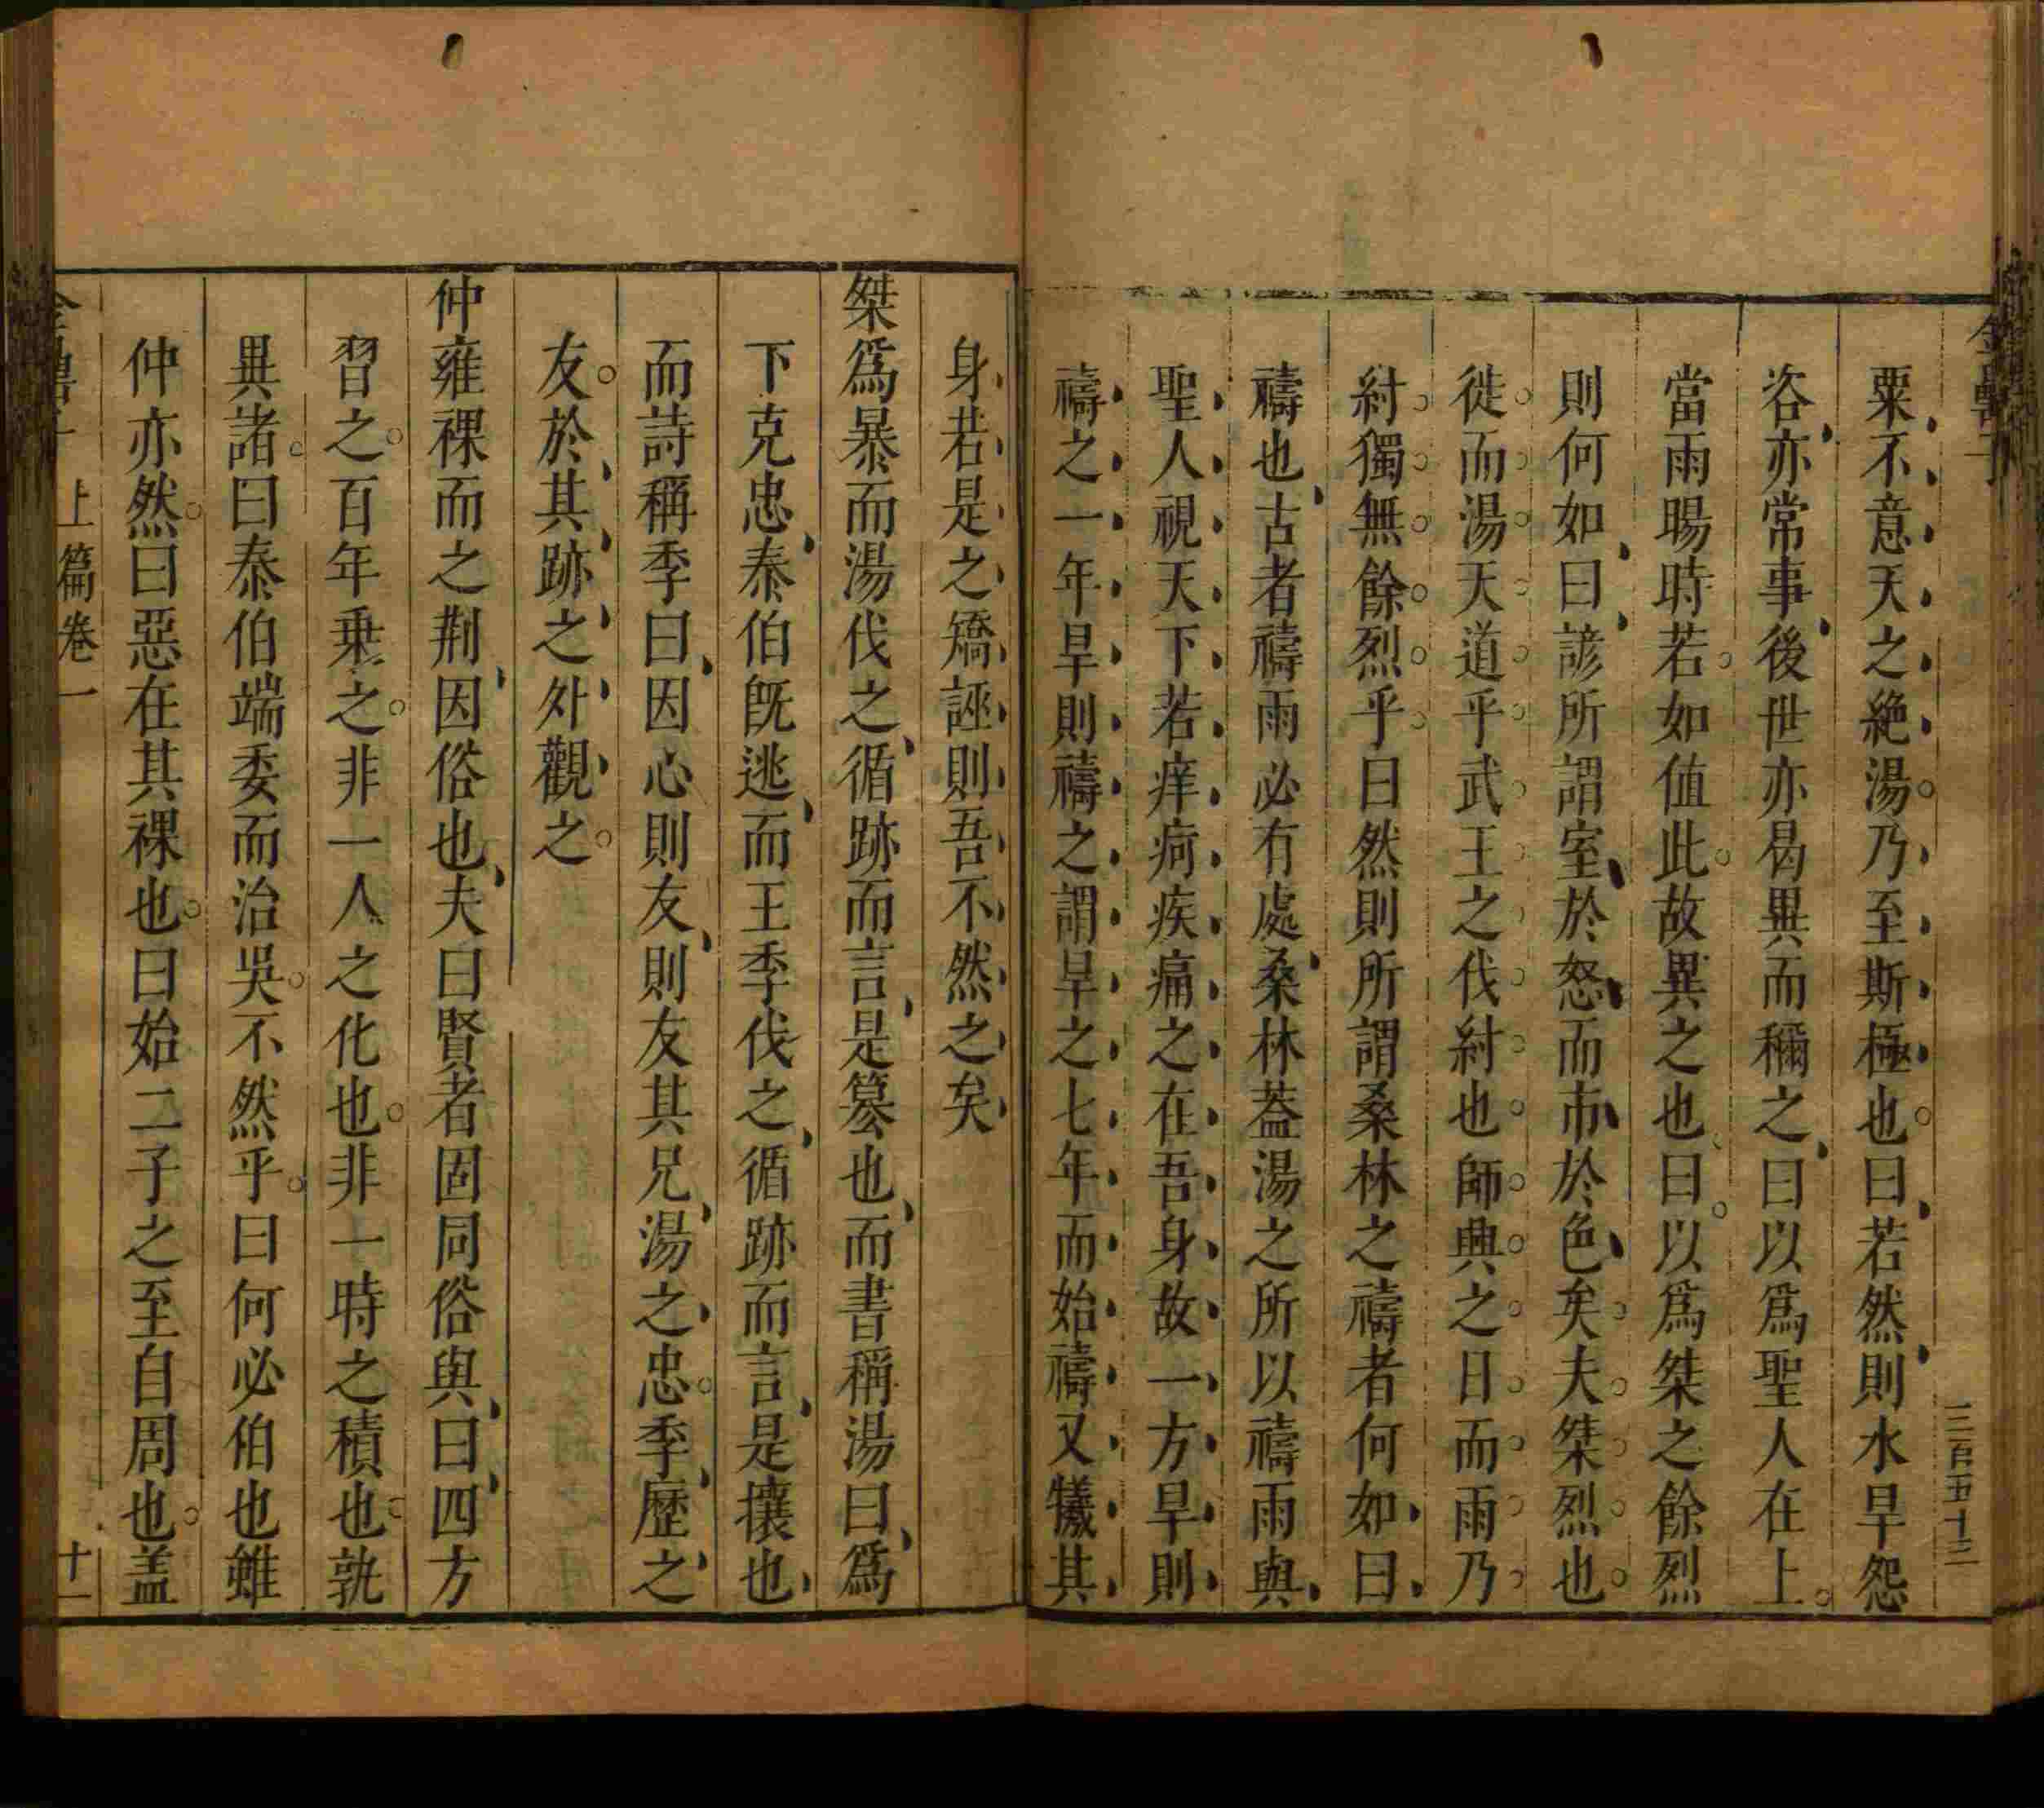 金罍子
三百五十三
粟不意天之絶湯乃至斯極也曰若然則水旱怨
咨亦常事後世亦曷異而穪之曰以爲聖人在上
當雨暘時若如值此故異之也曰以爲桀之餘烈
則何如曰諺所謂室於怒而市於色矣夫桀烈也
徙而湯天道乎武王之伐紂也師興之日而雨乃
紂獨無餘烈乎曰然則所謂桑林之禱者何如曰
禱也古者禱雨必有處桑林葢湯之所以禱雨與
聖人視天下若痒疴疾痛之在吾身故一方旱則
禱之一年旱則禱之謂旱之七年而始禱又犧其
身若是之矯誣則吾不然之矣
桀爲暴而湯伐之循跡而言是簒也而書稱湯曰爲
下克忠泰伯旣逃而王季伐之循跡而言是攘也
而詩稱季曰因心則友則友其兄湯之忠季歷之
友於其跡之外觀之
仲雍裸而之荆因俗也夫曰賢者固同俗與曰四方
習之百年乗之非一人之化也非一時之積也孰
異諸曰泰伯端委而治吳不然乎曰何必伯也雖
仲亦然曰惡在其裸也曰始二子之至自周也盖
上篇卷一
十一